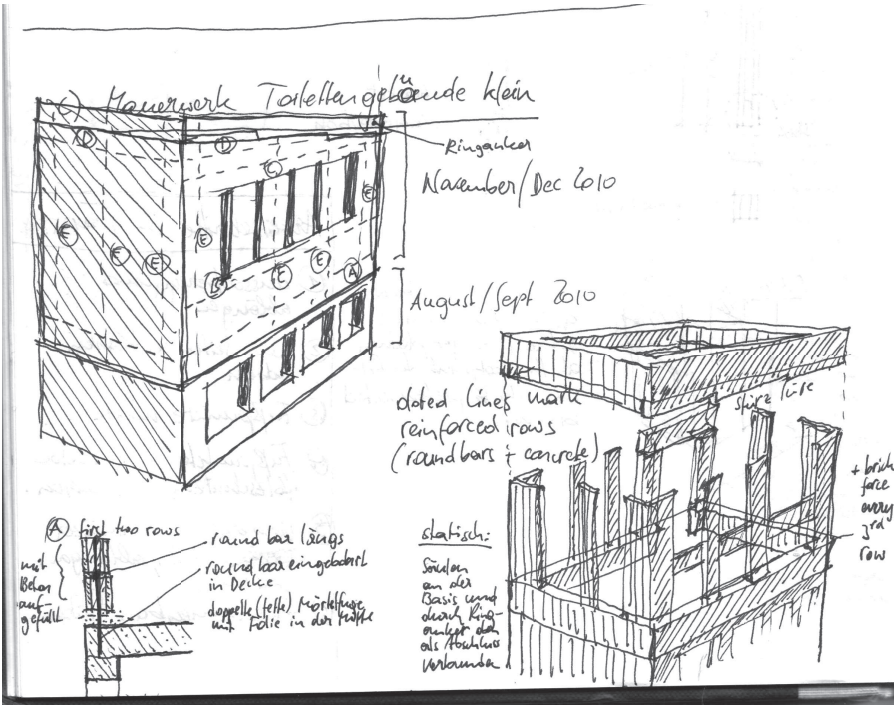 Mauerwerk Toilettengebäude klein
Ringanker
November/Dec 2010
August/Sept 2010
D
D
C
E
E
E
E
E
B
E
E
A
doted lines mark
reinforced rows
(roundbars + concrete)
sturz türe
+ brick
force
every
3rd
row
A first two rows
mit
Beton
auf-
gefüllt
round bar längs
round bar eingebohrt
in Decke
doppelte (fette) Mörtelfuge
mit Folie in der Mitte
statisch:
Säulen
an der
Basis und
durch Ring-
anker
als Abschluss
verbunden